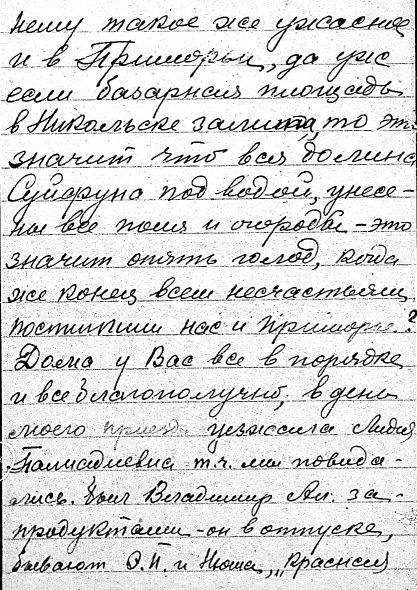 нему такое же ужасное
и в Приморьи, да уж
если базарная площадь
в Никольске залита, то это
значит что вся долина
Суйфуна под водой, унесе-
ны все поля и огороды - это
значит опять голод, когда
же конец всем несчастьям
постигшим нас и Приморье?
Дома у Вас все в порядке
и все благополучно, в день
моего приезда уезжала Лидия
Палладиевна т.ч. мы повида-
лись. Был Владимир Ал. за
продуктами - он в отпуске,
бывают О.П. и Нюша, „Красная